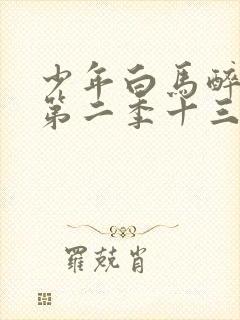 少年白馬醉
第二季十三
羅兢肖